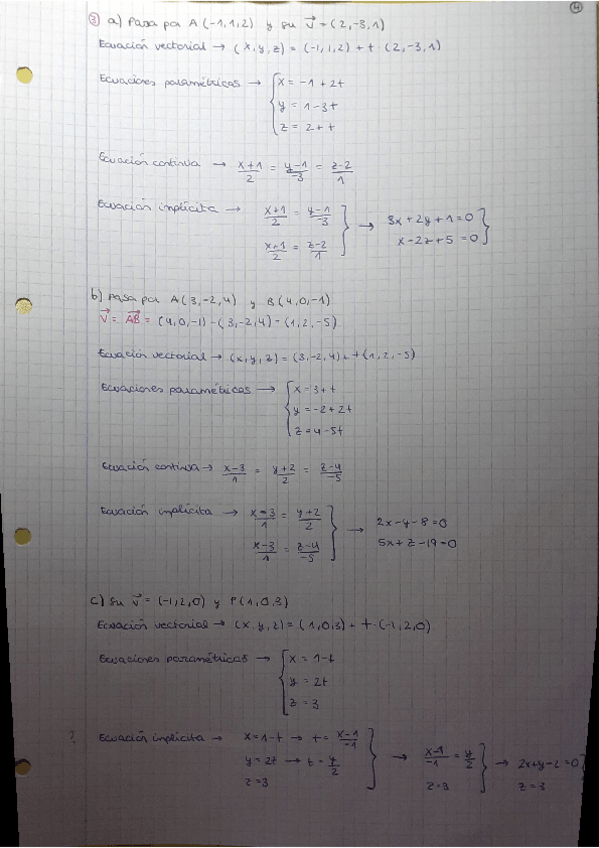 4
3 a) Pasa por A(-1,1,2) y su v⃗ = (2,-3,1)
Ecuación vectorial → (x,y,z) = (-1,1,2) + t · (2,-3,1)
Ecuaciones paramétricas → { x = -1 + 2t
y = 1-3t
z = 2+t
Ecuación continua → x+1/2 = y-1/-3 = z-2/1
Ecuación implícita → x+1/2 = y-1/-3 } → 3x+2y+1=0 }
x+1/2 = z-2/1 x-2z+5=0
b) Pasa por A(3,-2,4) y B(4,0,-1)
v⃗ = AB⃗ = (4,0,-1) - (3,-2,4) = (1,2,-5)
Ecuación vectorial → (x,y,z) = (3,-2,4) + t(1,2,-5)
Ecuaciones paramétricas → { x = 3+t
y = -2+2t
z = 4-5t
Ecuación continua → x-3/1 = y+2/2 = z-4/-5
Ecuación implícita → x-3/1 = y+2/2 } → 2x-y-8=0
x-3/1 = z-4/-5 5x+z-19=0
c) Su v⃗ = (-1,2,0) y P(1,0,3)
Ecuación vectorial → (x,y,z) = (1,0,3) + t·(-1,2,0)
Ecuaciones paramétricas → { x = 1-t
y = 2t
z = 3
? Ecuación implícita → x=1-t → t = x-1/-1 } → x-1/-1 = y/2 } → 2x+y-2=0 }
y=2t → t = y/2 z=3 z=3
z=3